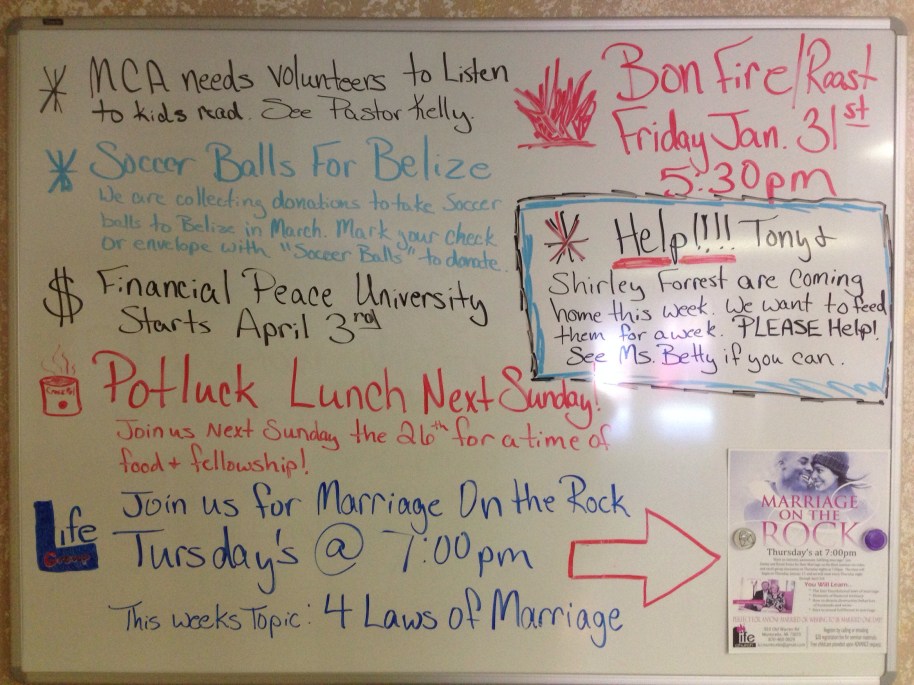 MCA needs volunteers to Listen
to kids read. See Pastor Kelly.
Soccer Balls For Belize
We are collecting donations to take Soccer
balls to Belize in March. Mark your check
or envelope with "Soccer Balls" to donate.
$ Financial Peace University
Starts April 3rd
Potluck Lunch Next Sunday!
Join us Next Sunday the 26th for a time of
food + fellowship!
Life
Join us for Marriage On the Rock
Tursday's @ 7:00pm
This weeks Topic: 4 Laws of Marriage
Bon Fire/Roast
Friday Jan. 31st
5:30pm
Help!!!! Tony &
Shirley Forrest are coming
home this week. We want to feed
them for a week. PLEASE Help!
See Ms. Betty if you can.
MARRIAGE
ON THE
ROCK
Thursday's at 7:00pm
You Will Learn...
Life